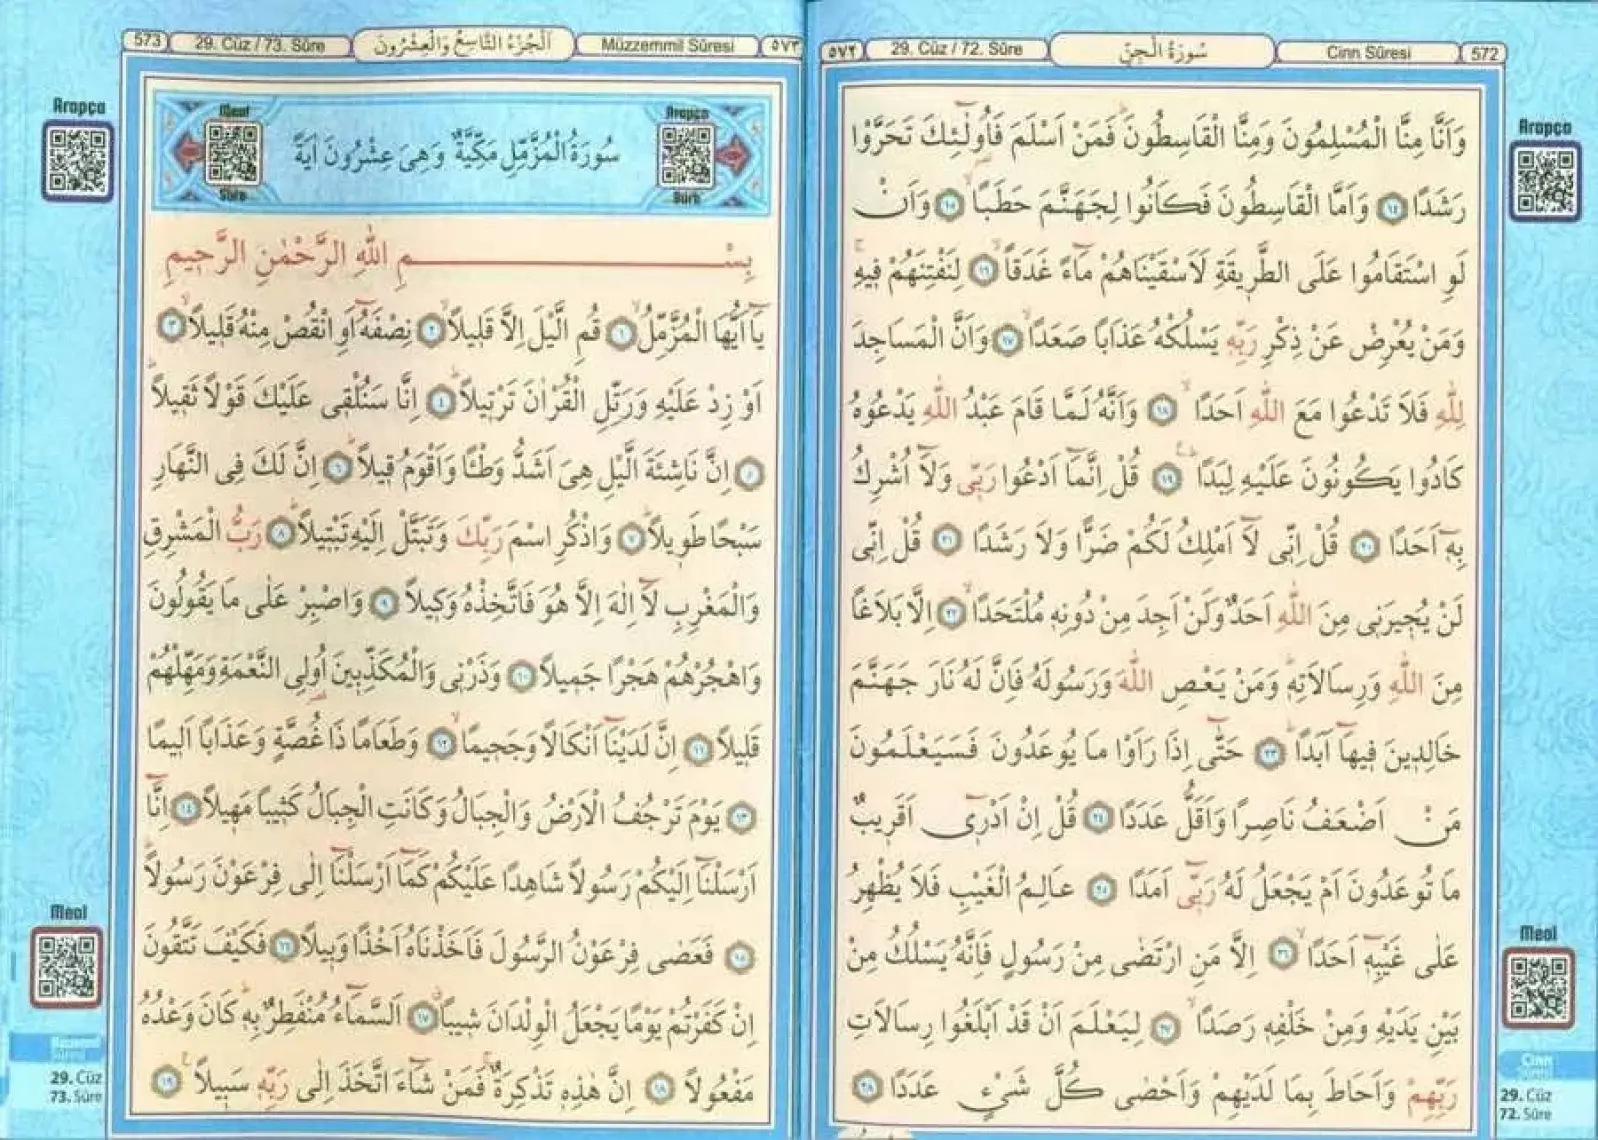 572
Cinn Sûresi
سُورَةُ الْجِنِّ
29. Cüz / 72. Sûre
٥٧٢
وَاَنَّا مِنَّا الْمُسْلِمُونَ وَمِنَّا الْقَاسِطُونَ فَمَنْ اَسْلَمَ فَاُو۬لٰٓئِكَ تَحَرَّوْا
رَشَدًا ١٤ وَاَمَّا الْقَاسِطُونَ فَكَانُوا لِجَهَنَّمَ حَطَبًا ١٥ وَاَنْ
لَوِ اسْتَقَامُوا عَلَى الطَّر۪يقَةِ لَاَسْقَيْنَاهُمْ مَٓاءً غَدَقًا ١٦ لِنَفْتِنَهُمْ ف۪يهِ
وَمَنْ يُعْرِضْ عَنْ ذِكْرِ رَبِّه۪ يَسْلُكْهُ عَذَابًا صَعَدًا ١٧ وَاَنَّ الْمَسَاجِدَ
لِلّٰهِ فَلَا تَدْعُوا مَعَ اللّٰهِ اَحَدًا ١٨ وَاَنَّهُ لَمَّا قَامَ عَبْدُ اللّٰهِ يَدْعُوهُ
كَادُوا يَكُونُونَ عَلَيْهِ لِبَدًا ١٩ قُلْ اِنَّمَٓا اَدْعُوا رَبّ۪ى وَلَٓا اُشْرِكُ
بِه۪ٓ اَحَدًا ٢٠ قُلْ اِنّ۪ى لَٓا اَمْلِكُ لَكُمْ ضَرًّا وَلَا رَشَدًا ٢١ قُلْ اِنّ۪ى
لَنْ يُج۪يرَن۪ى مِنَ اللّٰهِ اَحَدٌ وَلَنْ اَجِدَ مِنْ دُونِه۪ مُلْتَحَدًا ٢٢ اِلَّا بَلَاغًا
مِنَ اللّٰهِ وَرِسَالَاتِه۪ وَمَنْ يَعْصِ اللّٰهَ وَرَسُولَهُ فَاِنَّ لَهُ نَارَ جَهَنَّمَ
خَالِد۪ينَ ف۪يهَٓا اَبَدًا ٢٣ حَتّٰٓى اِذَا رَاَوْا مَا يُوعَدُونَ فَسَيَعْلَمُونَ
مَنْ اَضْعَفُ نَاصِرًا وَاَقَلُّ عَدَدًا ٢٤ قُلْ اِنْ اَدْر۪ٓى اَقَر۪يبٌ
مَا تُوعَدُونَ اَمْ يَجْعَلُ لَهُ رَبّ۪ٓى اَمَدًا ٢٥ عَالِمُ الْغَيْبِ فَلَا يُظْهِرُ
عَلٰى غَيْبِه۪ٓ اَحَدًا ٢٦ اِلَّا مَنِ ارْتَضٰى مِنْ رَسُولٍ فَاِنَّهُ يَسْلُكُ مِنْ
بَيْنِ يَدَيْهِ وَمِنْ خَلْفِه۪ رَصَدًا ٢٧ لِيَعْلَمَ اَنْ قَدْ اَبْلَغُوا رِسَالَاتِ
رَبِّهِمْ وَاَحَاطَ بِمَا لَدَيْهِمْ وَاَحْصٰى كُلَّ شَىْءٍ عَدَدًا ٢٨
Arapça
Meal
Cinn
Sûresi
29. Cüz
72. Sûre
٥٧٣
Müzzemmil Sûresi
اَلْجُزْءُ التَّاسِعُ وَالْعِشْرُونَ
29. Cüz / 73. Sûre
573
Arapça
Sûre
سُورَةُ الْمُزَّمِّلِ مَكِّيَّةٌ وَهِىَ عِشْرُونَ اٰيَةً
Meal
Sûre
بِسْمِ اللّٰهِ الرَّحْمٰنِ الرَّح۪يمِ
يَٓا اَيُّهَا الْمُزَّمِّلُ ١ قُمِ الَّيْلَ اِلَّا قَل۪يلًا ٢ نِصْفَهُٓ اَوِ انْقُصْ مِنْهُ قَل۪يلًا ٣
اَوْ زِدْ عَلَيْهِ وَرَتِّلِ الْقُرْاٰنَ تَرْت۪يلًا ٤ اِنَّا سَنُلْق۪ى عَلَيْكَ قَوْلًا ثَق۪يلًا
٥ اِنَّ نَاشِئَةَ الَّيْلِ هِىَ اَشَدُّ وَطْـًٔا وَاَقْوَمُ ق۪يلًا ٦ اِنَّ لَكَ فِى النَّهَارِ
سَبْحًا طَو۪يلًا ٧ وَاذْكُرِ اسْمَ رَبِّكَ وَتَبَتَّلْ اِلَيْهِ تَبْت۪يلًا ٨ رَبُّ الْمَشْرِقِ
وَالْمَغْرِبِ لَٓا اِلٰهَ اِلَّا هُوَ فَاتَّخِذْهُ وَك۪يلًا ٩ وَاصْبِرْ عَلٰى مَا يَقُولُونَ
وَاهْجُرْهُمْ هَجْرًا جَم۪يلًا ١٠ وَذَرْن۪ى وَالْمُكَذِّب۪ينَ اُو۬لِى النَّعْمَةِ وَمَهِّلْهُمْ
قَل۪يلًا ١١ اِنَّ لَدَيْنَٓا اَنْكَالًا وَجَح۪يمًا ١٢ وَطَعَامًا ذَا غُصَّةٍ وَعَذَابًا اَل۪يمًا
١٣ يَوْمَ تَرْجُفُ الْاَرْضُ وَالْجِبَالُ وَكَانَتِ الْجِبَالُ كَث۪يبًا مَه۪يلًا ١٤ اِنَّٓا
اَرْسَلْنَٓا اِلَيْكُمْ رَسُولًا شَاهِدًا عَلَيْكُمْ كَمَٓا اَرْسَلْنَٓا اِلٰى فِرْعَوْنَ رَسُولًا
١٥ فَعَصٰى فِرْعَوْنُ الرَّسُولَ فَاَخَذْنَاهُ اَخْذًا وَب۪يلًا ١٦ فَكَيْفَ تَتَّقُونَ
اِنْ كَفَرْتُمْ يَوْمًا يَجْعَلُ الْوِلْدَانَ ش۪يبًا ١٧ اَلسَّمَٓاءُ مُنْفَطِرٌ بِه۪ كَانَ وَعْدُهُ
مَفْعُولًا ١٨ اِنَّ هٰذِه۪ تَذْكِرَةٌ فَمَنْ شَٓاءَ اتَّخَذَ اِلٰى رَبِّه۪ سَب۪يلًا ١٩
Arapça
Meal
Müzzemmil
Sûresi
29. Cüz
73. Sûre